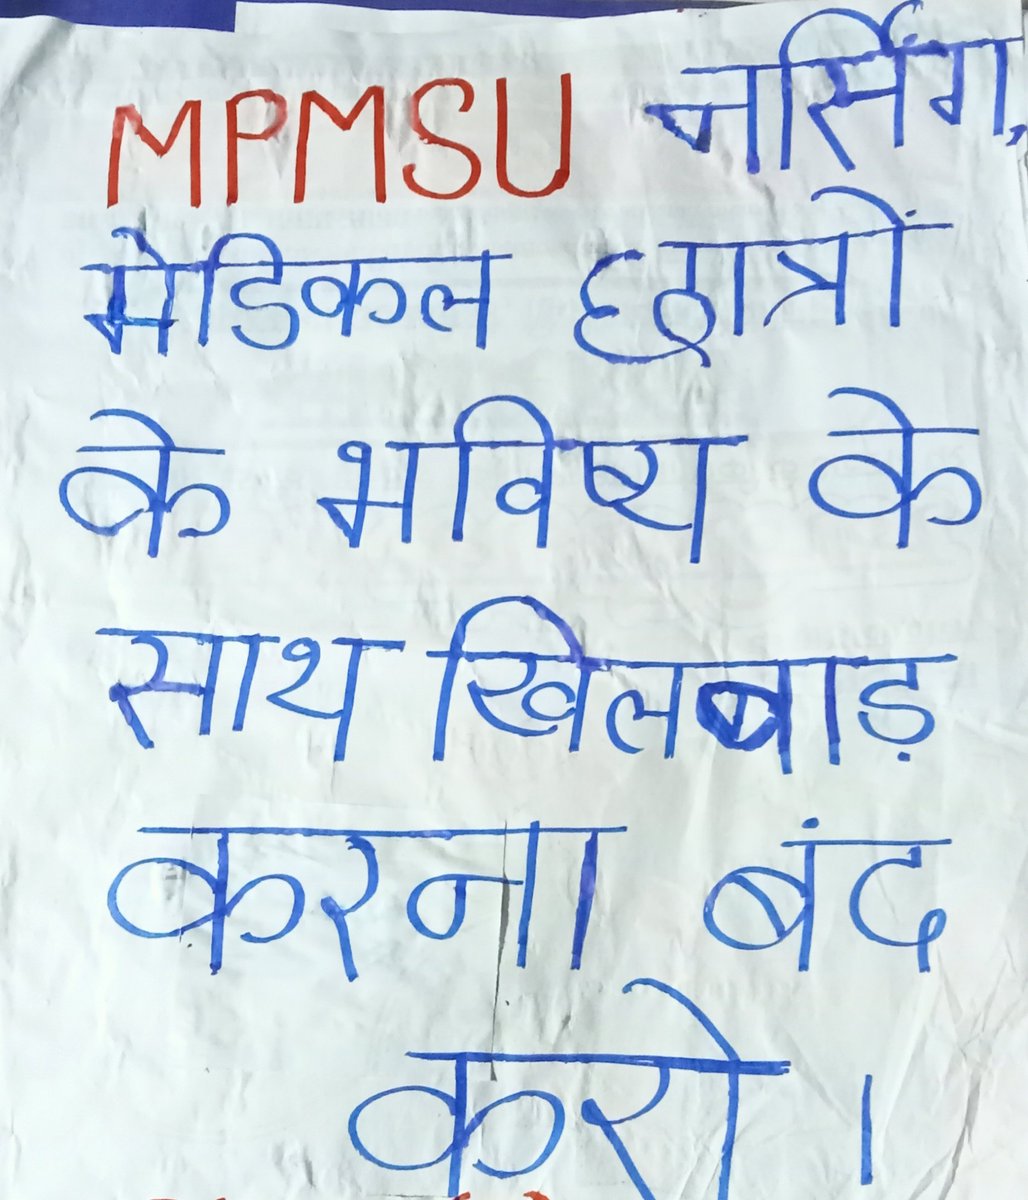 MPMSU नर्सिंग,
मेडिकल छात्रों
के भविष्य के
साथ खिलबाड़
करना बंद
करो ।